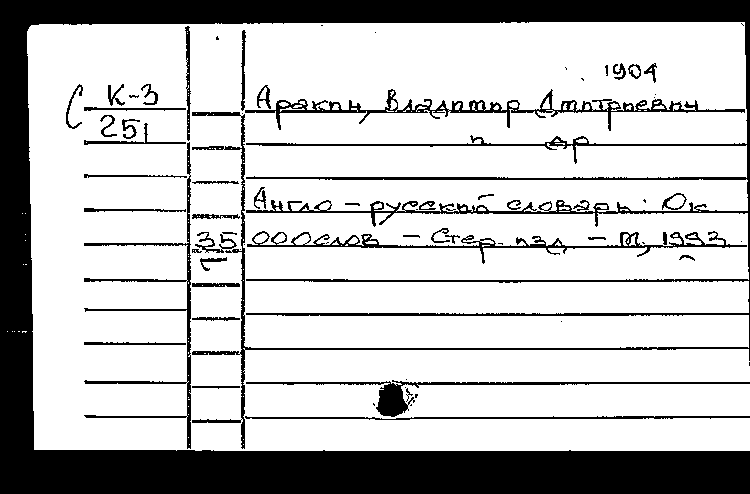 1904
С К-3 Аракин, Владимир Дмитриевич
251 и др
Англо-русский словарь: Ок
35 000 слов - Стер. изд. - М, 1993